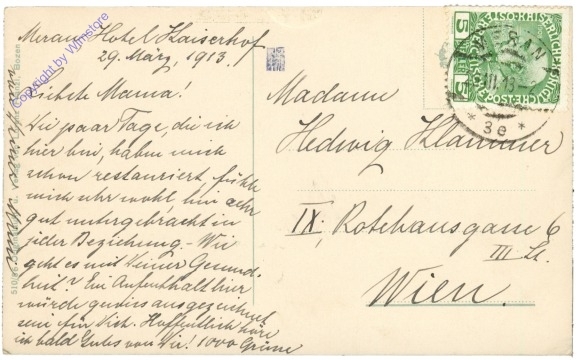 Meran, Hotel Kaiserhof
29. März, 1913.
Liebste Mama!
Die paar Tage, die ich
hier bin, haben mich
schon restauriert, fühle
mich sehr wohl, bin sehr
gut untergebracht in
jeder Beziehung. - Wie
geht es mit Deiner Gesund-
heit? Ein Aufenthalt hier
würde gewiss ausgezeichnet
sein für Dich. Hoffentlich höre
ich bald Gutes von Dir! 1000 Grüsse
Madame
Hedwig Klammer
IX; Rotehausgasse 6
III St.
Wien.
5
5
MERAN
* 3e *
Copyright by Wimstore
Bozen